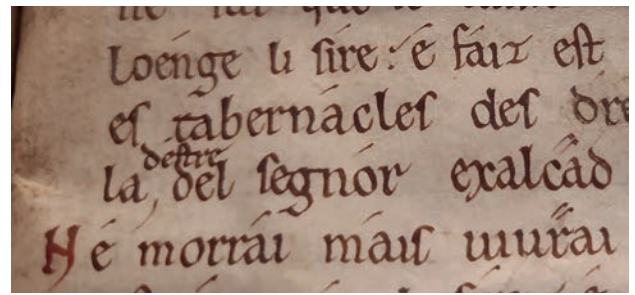 loenge li sire: e faiz est
es tabernacles des dre
la destre del segnor exalcad
Ne morrai mais uiurai